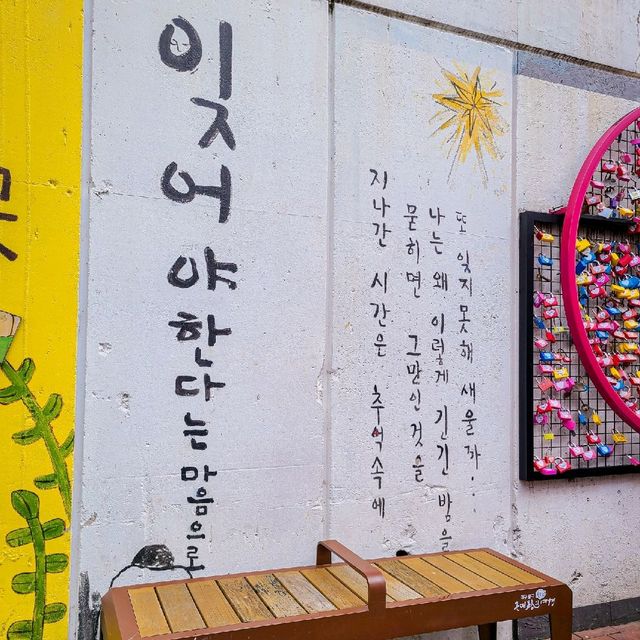 잊어야 한다는 마음으로
지나간 시간은 추억속에
묻히면 그만인것을
나는 왜 이렇게 긴긴 밤을
또 잊지못해 새울까...